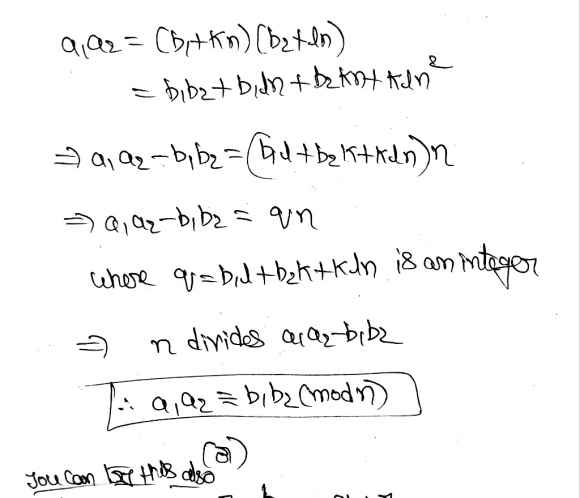 a₁a₂ = (b₁+kn)(b₂+ln)
= b₁b₂+b₁ln+b₂kn+kln²
⇒ a₁a₂-b₁b₂=(b₁l+b₂k+kln)n
⇒ a₁a₂-b₁b₂= qn
where q=b₁l+b₂k+kln is an integer
⇒ n divides a₁a₂-b₁b₂
∴ a₁a₂≡b₁b₂(mod n)
(a)
you can this also